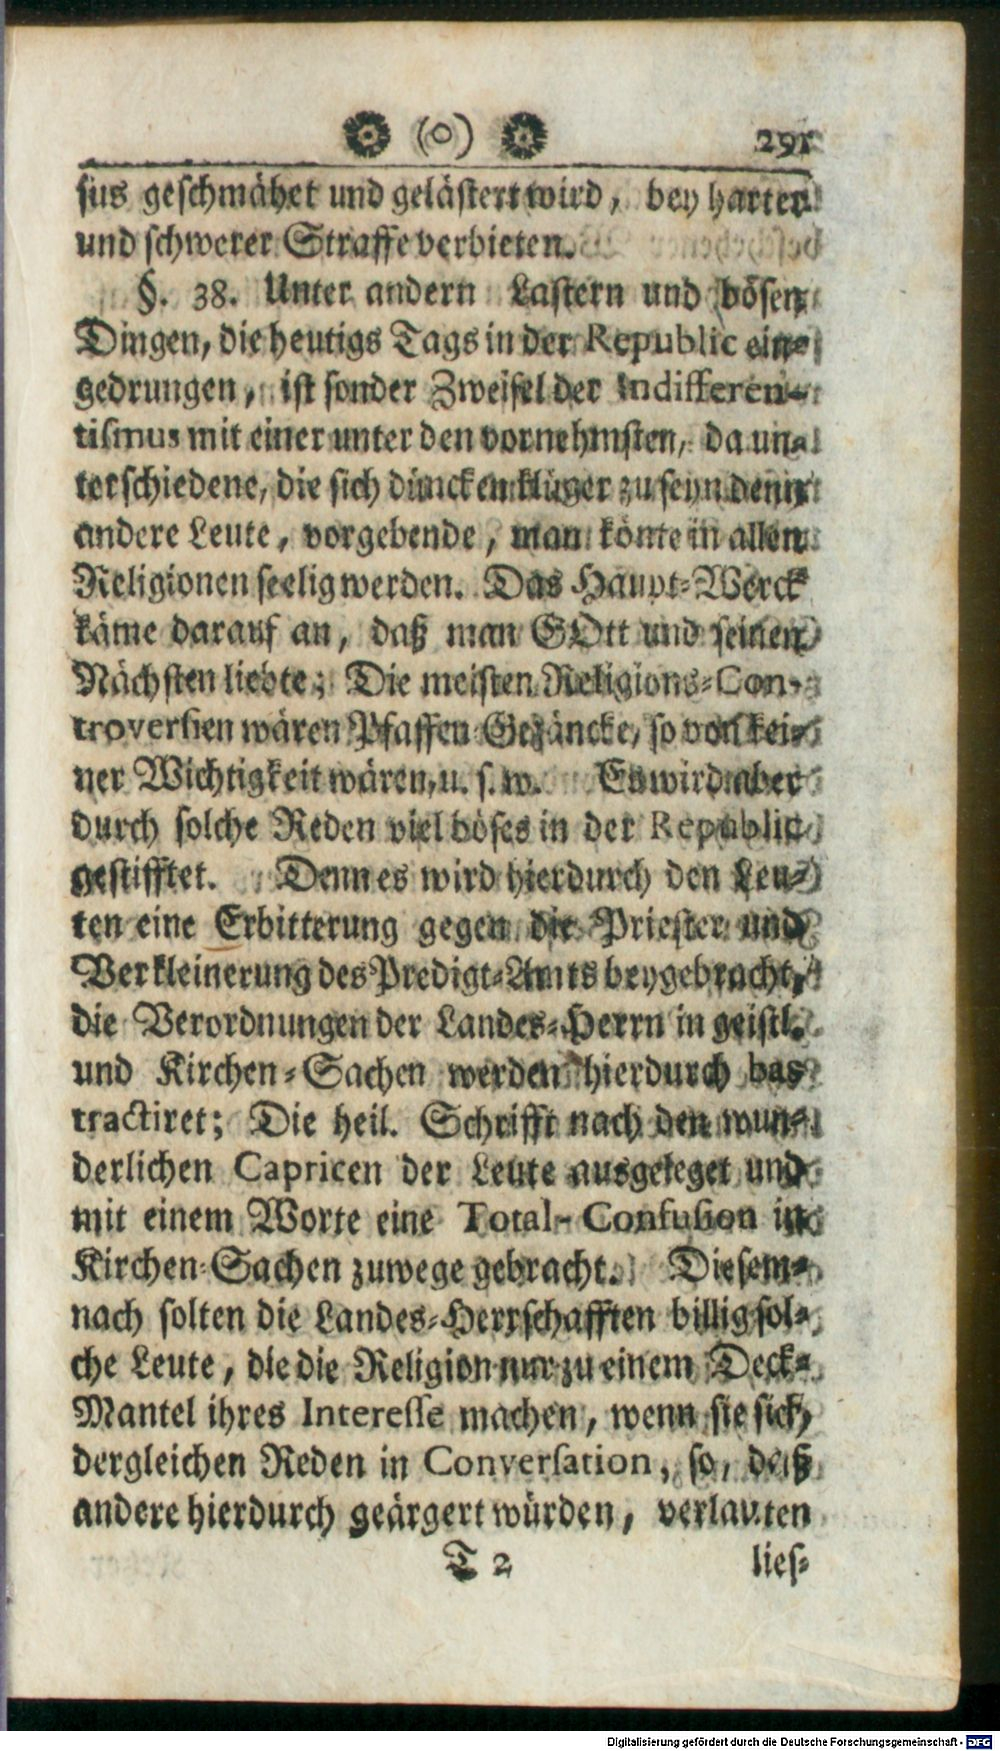 (o) 291
sius geschmähet und gelästert wird, bey harter
und schwerer Straffe verbieten.
§. 38. Unter andern Lastern und bösen
Dingen, die heutigs Tags in der Republic ein-
gedrungen, ist sonder Zweifel der Indifferen-
tismus mit einer unter den vornehmsten, da un-
terschiedene, die sich düncken klüger zu seyn denn
andere Leute, vorgebende, man könte in allen
Religionen seelig werden. Das Haupt-Werck
käme darauf an, daß man GOtt und seinen
Nächsten liebte; Die meisten Religions-Con-
troversien wären Pfaffen Gezäncke, so von kei-
ner Wichtigkeit wären, u. s. w. Es wird aber
durch solche Reden viel böses in der Republic
gestifftet. Denn es wird hierdurch den Leu-
ten eine Erbitterung gegen die Priester und
Verkleinerung des Predigt-Amts beygebracht,
die Verordnungen der Landes-Herrn in geistl.
und Kirchen-Sachen werden hierdurch bas
tractiret; Die heil. Schrifft nach den wun-
derlichen Capricen der Leute ausgeleget und
mit einem Worte eine Total-Confusion in
Kirchen-Sachen zuwege gebracht. Diesem-
nach solten die Landes-Herrschafften billig sol-
che Leute, die die Religion nur zu einem Deck-
Mantel ihres Interesse machen, wenn sie sich
dergleichen Reden in Conversation, so, daß
andere hierdurch geärgert würden, verlauten
T 2 lies-
Digitalisierung gefördert durch die Deutsche Forschungsgemeinschaft - DFG